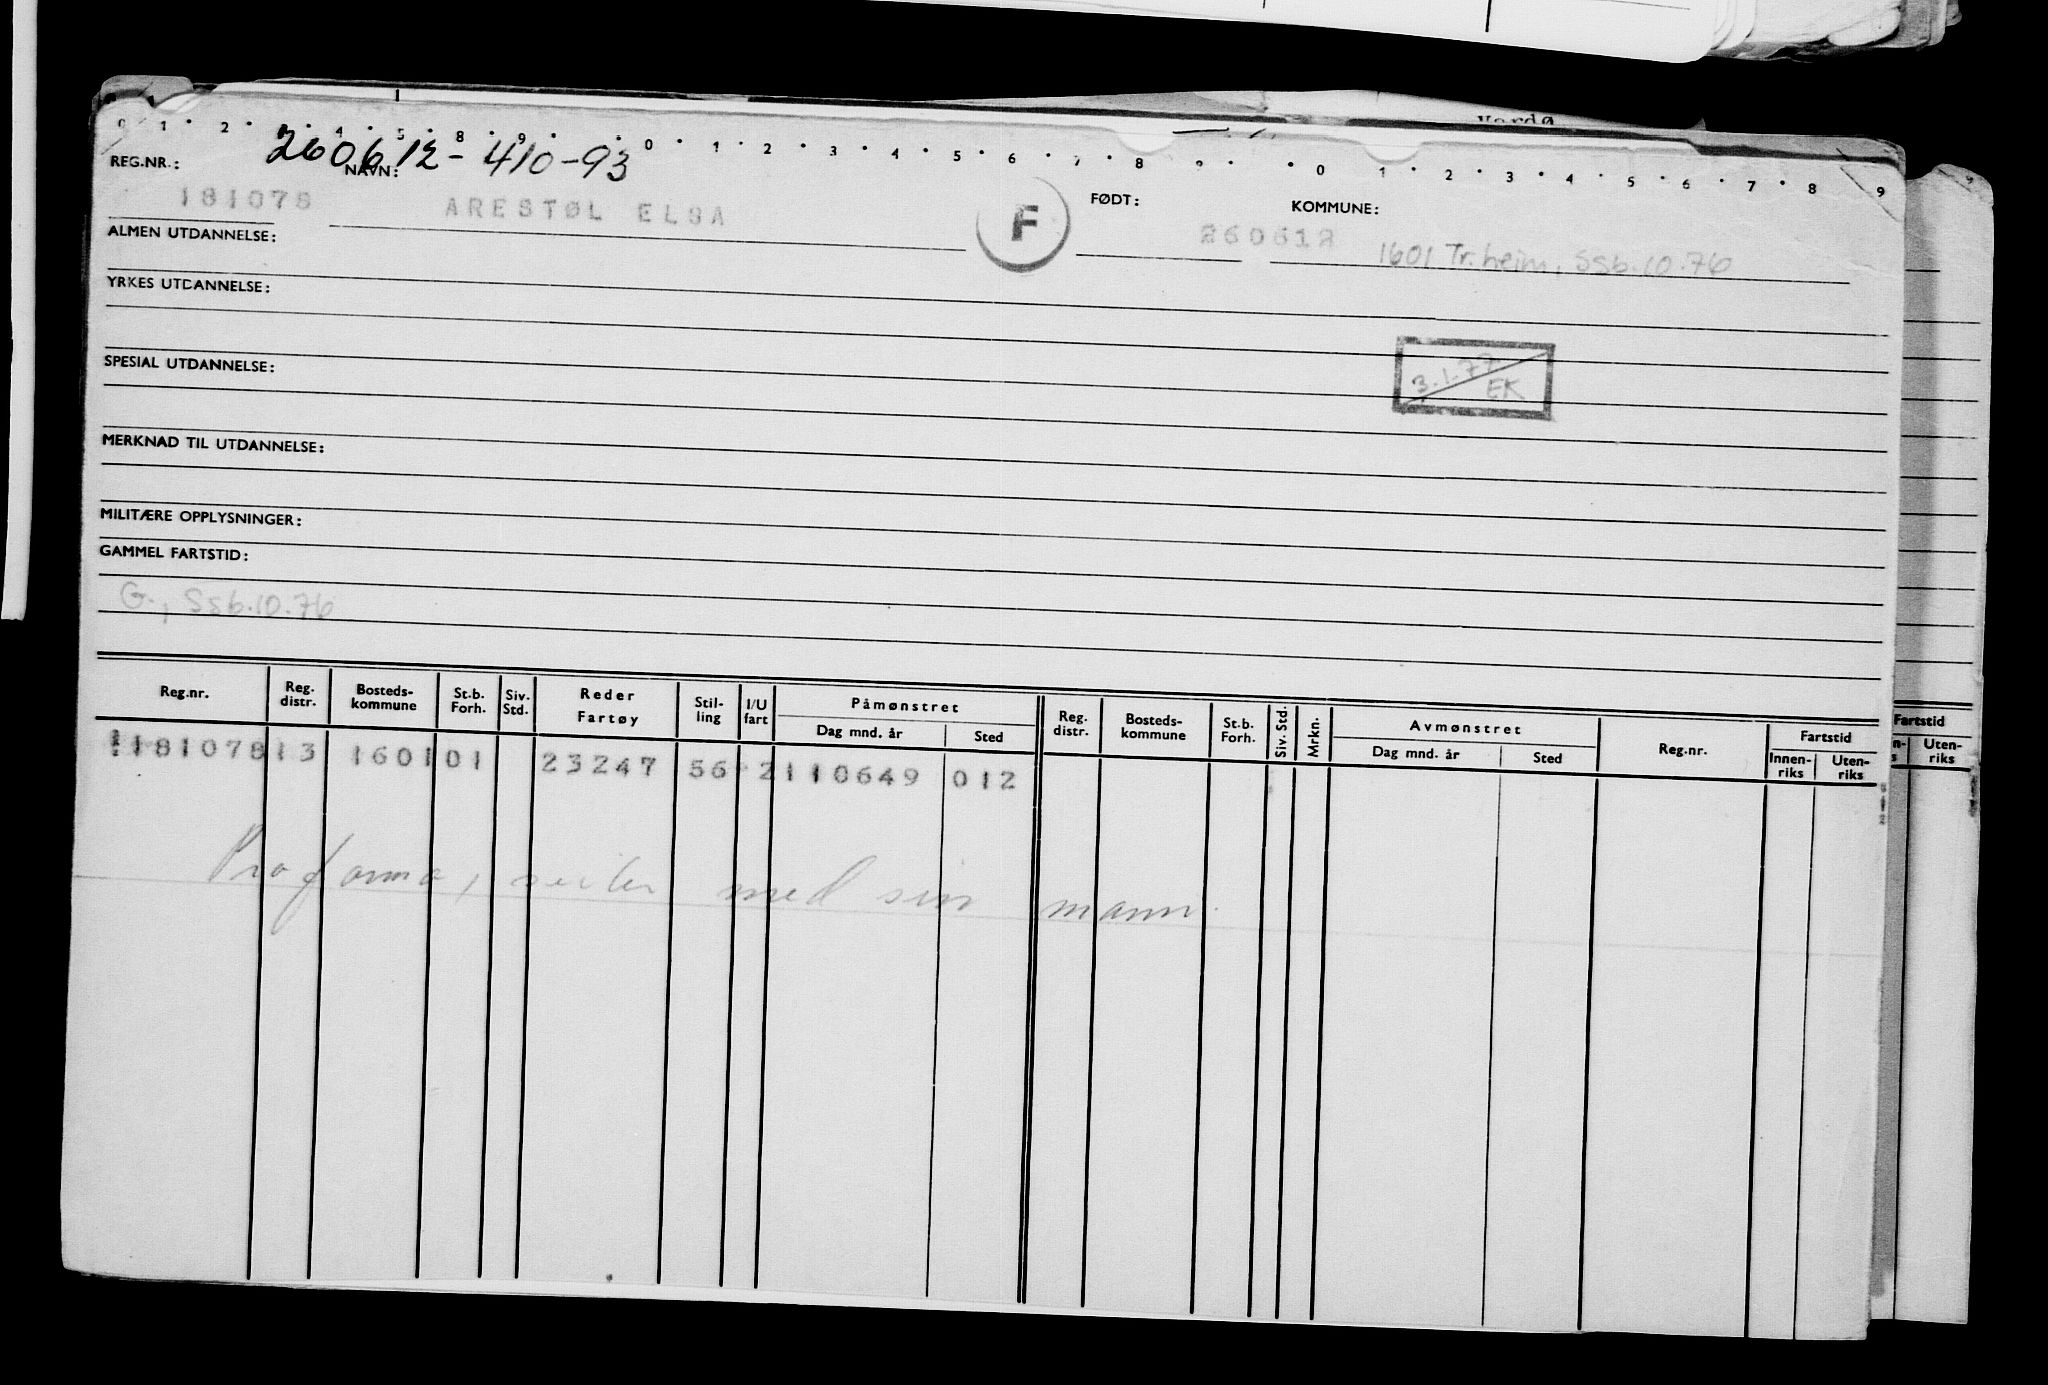 Vardø
0 1 2 4 5 8 9 0 1 2 3 4 5 6 7 8 9 0 1 2 3 4 5 6 7 8 9
260612-410-93
REG.NR.: NAVN: FØDT: KOMMUNE:
181078 ARESTØL ELSA F 260612 1601 Tr.heim, Ssb.10.76
ALMEN UTDANNELSE:
YRKES UTDANNELSE:
SPESIAL UTDANNELSE:
3.1.77
EK
MERKNAD TIL UTDANNELSE:
MILITÆRE OPPLYSNINGER:
GAMMEL FARTSTID:
G., Ssb.10.76
Reg.nr. Reg. distr. Bosteds-kommune St.b. Forh. Siv. Std. Reder Fartøy Stil-ling I/U fart Påmønstret Dag mnd. år Sted Reg. distr. Bosteds-kommune St.b. Forh. Siv. Std. Mrkn. Avmønstret Dag mnd. år Sted Reg.nr. Fartstid Innen-riks Uten-riks
Fartstid
Uten-riks
181078 13 1601 01 23247 56 2 110649 012
Proforma, seiler med sin mann.